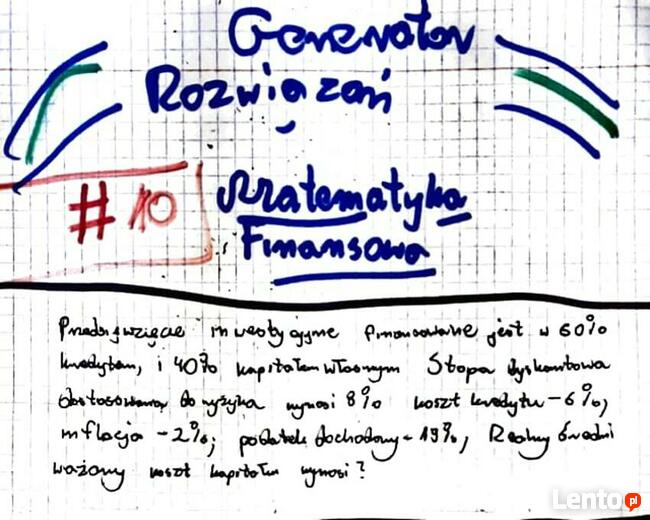 Generator
Rozwiązań
#10
Matematyka
Finansowa
Przedsięwzięcie inwestycyjne finansowane jest w 60%
kredytem, i 40% kapitałem własnym Stopa dyskontowa
dostosowana do ryzyka wynosi 8% koszt kredytu - 6%,
inflacja - 2%; podatek dochodowy - 19%, Realny średni
ważony koszt kapitału wynosi?
Lento.pl